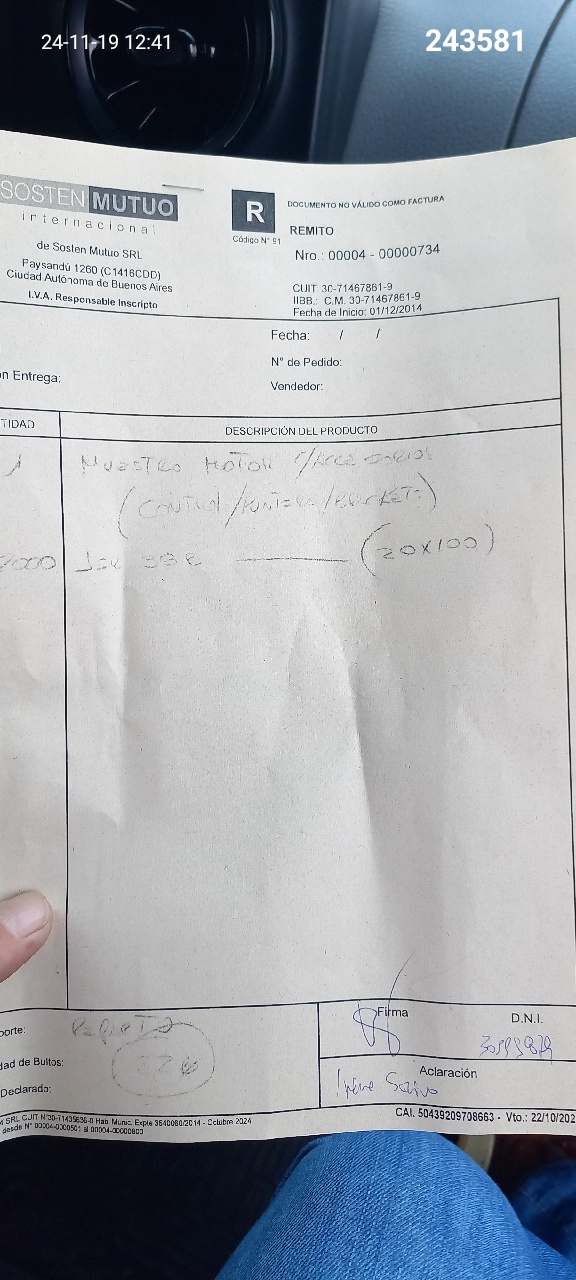 24-11-19 12:41
243581
SOSTEN MUTUO
internacional
de Sosten Mutuo SRL
Paysandú 1260 (C1416CDD)
Ciudad Autónoma de Buenos Aires
I.V.A. Responsable Inscripto
R
Código N° 91
DOCUMENTO NO VÁLIDO COMO FACTURA
REMITO
Nro.: 00004 - 00000734
CUIT 30-71467861-9
IIBB.: C.M. 30-71467861-9
Fecha de Inicio: 01/12/2014
Fecha: / /
N° de Pedido:
n Entrega:
Vendedor:
TIDAD
DESCRIPCIÓN DEL PRODUCTO
1 MUESTRO MOTOR C/ACCESORIOS
2000 (20X100)
porte:
Firma
D.N.I.
dad de Bultos:
Aclaración
Declarado:
Irene
SRL CUIT N°30-71435636-0 Hab. Munic. Expte 3640060/2014 - Octubre 2024
desde N° 00004-0000501 al 00004-00000800
CAI. 50439209708663 - Vto.: 22/10/202